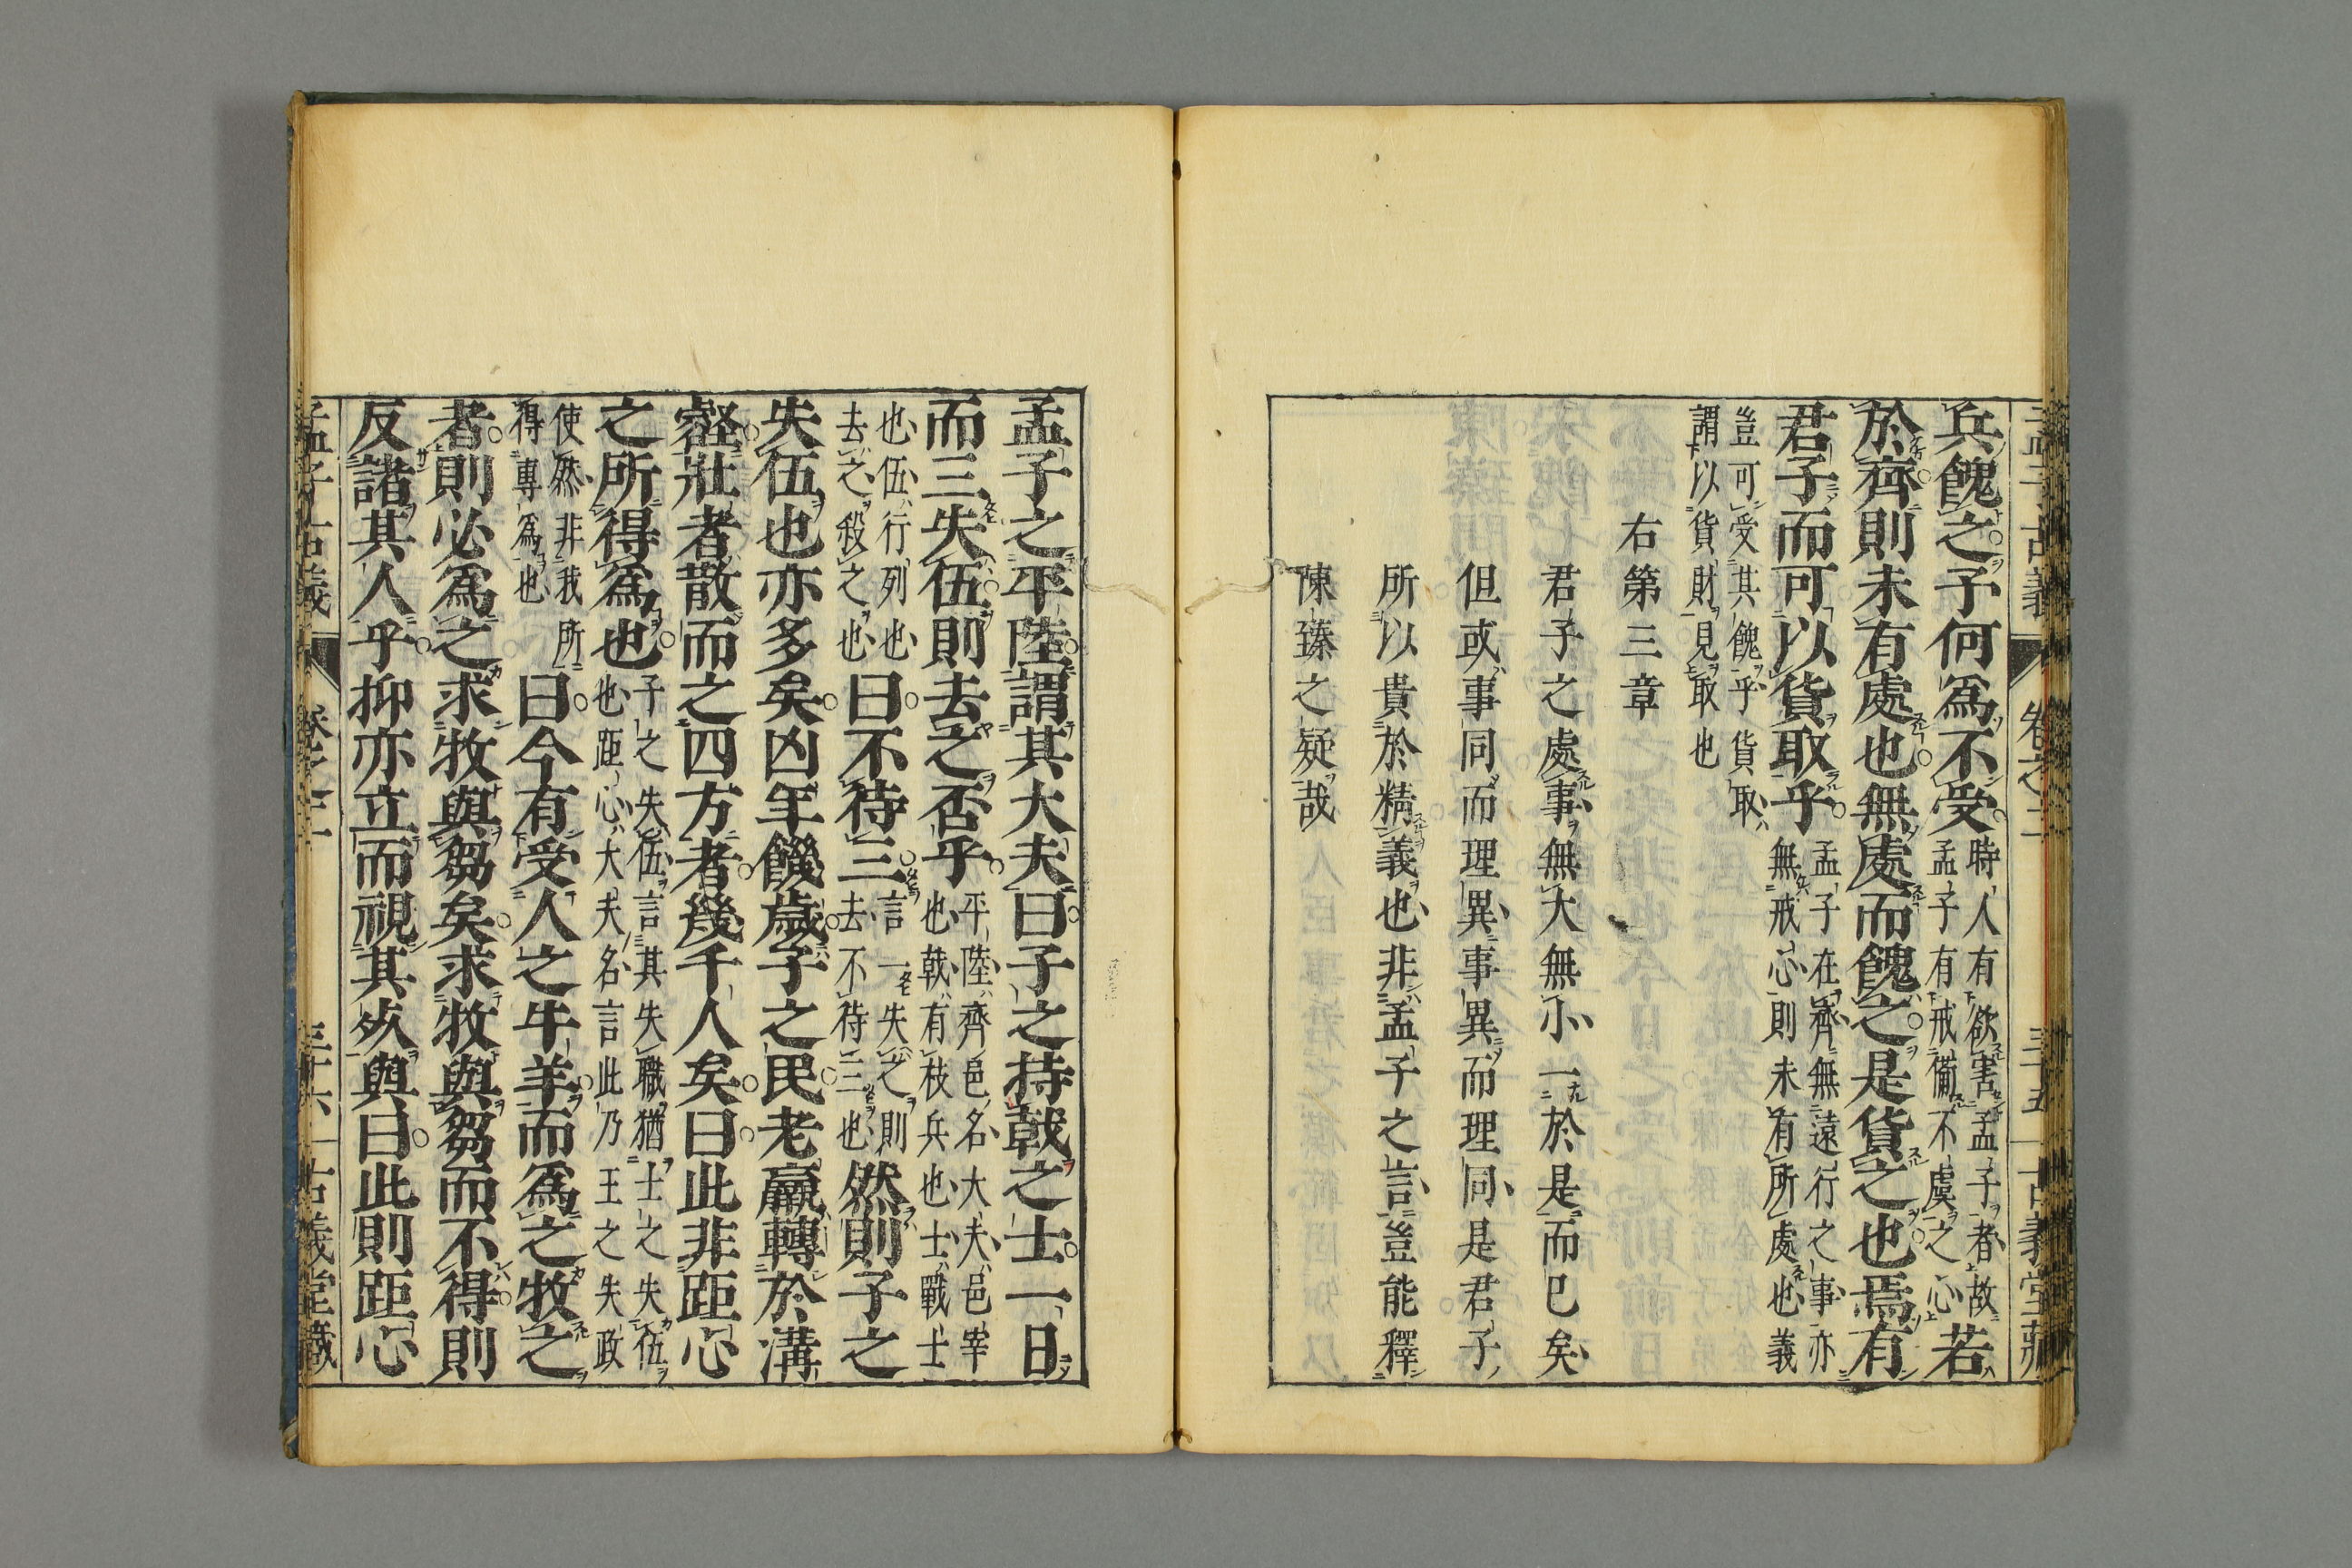 孟子古義 卷之二 三十五 古義堂藏
兵餽之予何爲不受
時人有欲害孟子者故
孟子有戒備不虞之心
若
於齊則未有處也無處而餽之是貨之也焉有
君子而可以貨取乎
孟子在齊無遠行之事亦
無戒心則未有所處也義
豈可受其餽乎貨取
謂以貨財見取也
右第三章
君子之處事無大無小一於是而已矣
但或事同而理異事異而理同是君子
所以貴於精義也非孟子之言豈能釋
陳臻之疑哉
孟子之平陸謂其大夫曰子之持戟之士一日
而三失伍則去之否乎
平陸齊邑名大夫邑宰
也戟有枝兵也士戰士
也伍行列也
去之殺之也
曰不待三
言一失之則
去不待三也
然則子之
失伍也亦多矣凶年饑歲子之民老羸轉於溝
壑壯者散而之四方者幾千人矣曰此非距心
之所得爲也
子之失伍言其失職猶士之失伍
也距心大夫名言此乃王之失政
使然非我所
得專爲也
曰今有受人之牛羊而爲之牧之
者則必爲之求牧與芻矣求牧與芻而不得則
反諸其人乎抑亦立而視其死與曰此則距心
孟子古義 卷之二 三十六 古義堂藏